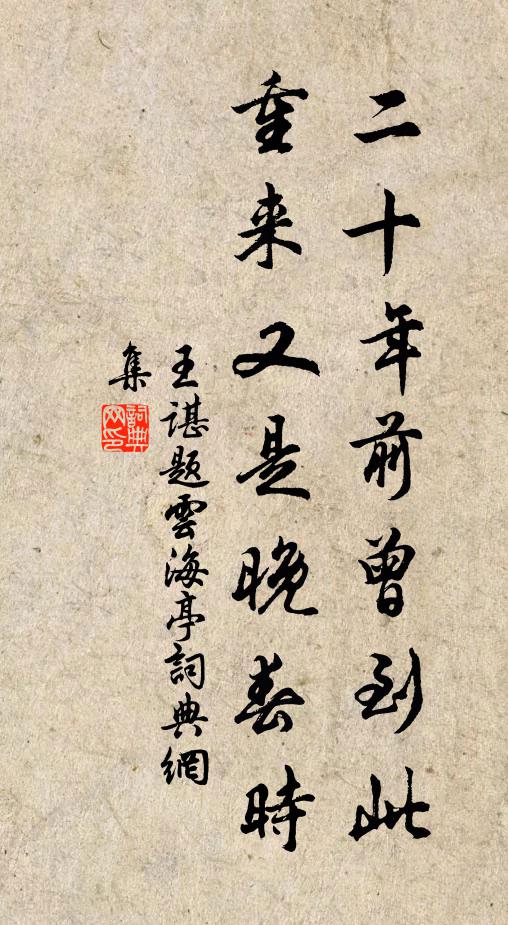 二十年前曾到此
重来又是晚春時
王諶题雲海亭詞典網
集
詞典
网印